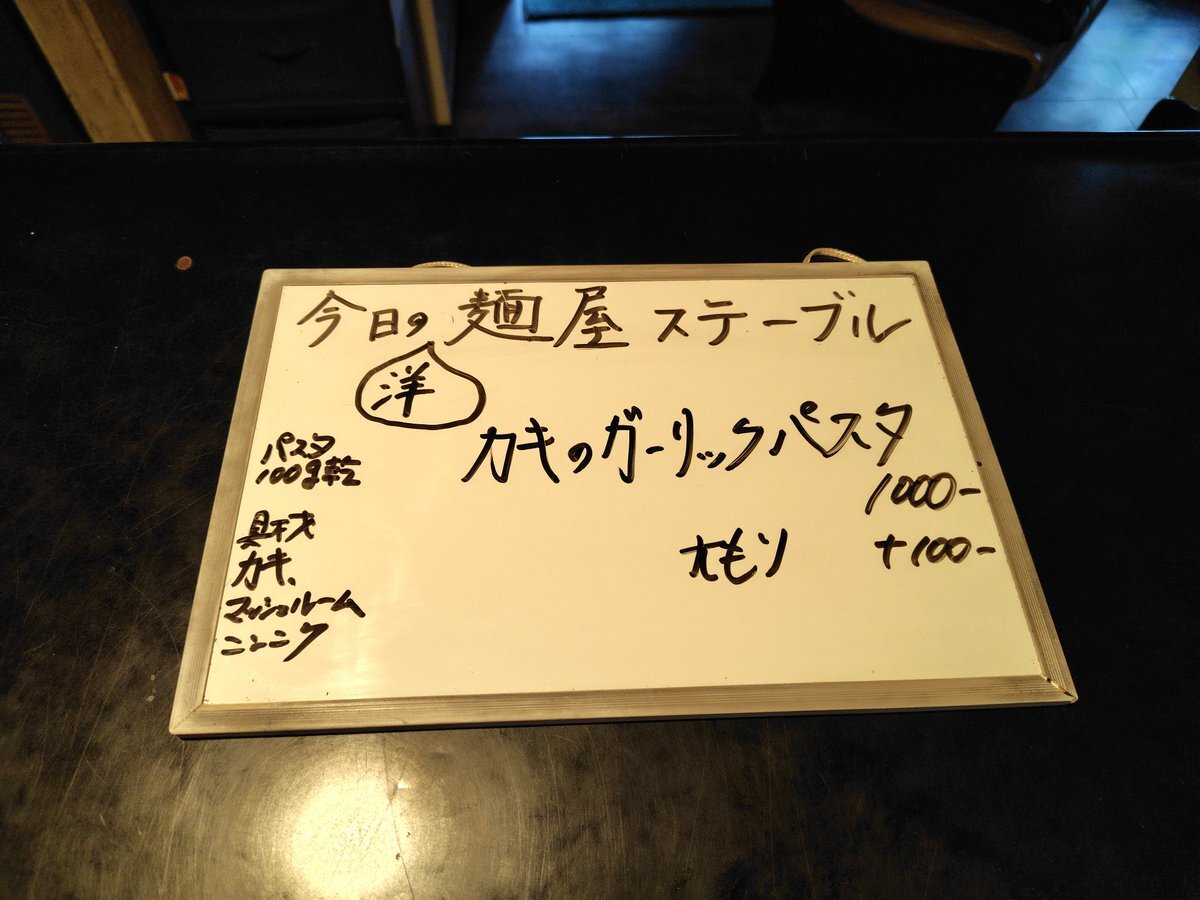 今日の麺屋ステーブル
洋
カキのガーリックパスタ
1000-
大もり +100-
パスタ
100g乾
具材
カキ、
マッシュルーム
ニンニク